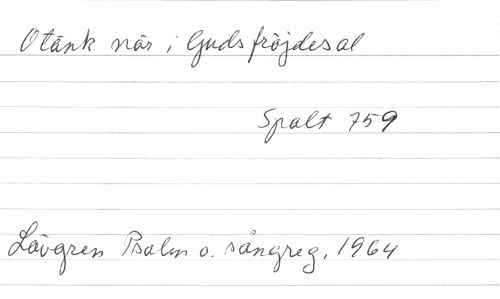 O tänk när i Guds fröjdesal
Spalt 759
Lövgren Psalm o. sångreg. 1964